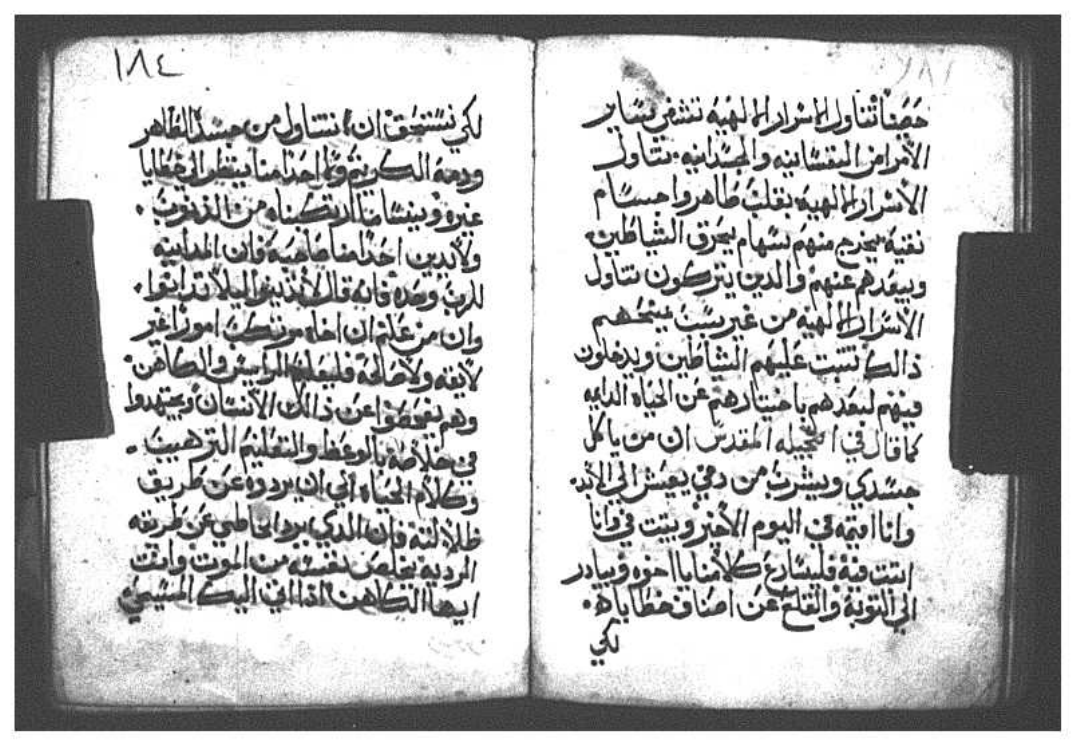 حصنا تناول الاسرار الالهيه تشفي ساير
الأمراض النفسانيه والجسدانيه، تناول
الأسرار الالهيه بقلب طاهر واجسام
نقيه يخرج منهم سهام يحرق الشياطين
ويبعدهم عنهم والدين يتركون تناول
الأسرار الالهيه من غير سبب يمنعهم
ذالك تثبت عليهم الشياطين ويدخلون
فيهم لبعدهم باختيارهم عن الحياه الدايمه
كما قال في انجيله المقدس ان من ياكل
جسدي ويشرب من دمي يعيش الي الأبد.
وانا اقيمه في اليوم الأخير ويتبت في وانا
اتبت فيه فليسارع كلأ منا يا اخوه ويبادر
الي التوبة والقلع عن اصناف خطاياه.
لكي
١٨٤
لكي نستحق ان نتناول من جسده الطاهر
ودمه الكريم ولا احدا منا ينظر الي خطايا
غيره وينسا ما ارتكبناه من الذنوب.
ولأ يدين احدا منا صاحبه فان المداينه
للرب وحده فانه قال لأ تدينوا ليلا تدانوا.
وان من علم ان اخاه مرتكب امورا غير
لأيقه ولأ صالحة فليعلم الراييس والكاهن
وهم يفحصوا عن ذالك الأنسان ويجتهدوا
في خلاصه بالوعظ والتعليم الترهيب.
وكلام الحياه الي ان يردوه عن طريق
ظلالته فان الدي يرد الخاطي عن طريقه
الرديه يخلص نفسه من الموت وانت
ايها الكاهن ادا اتي اليك المسيحي